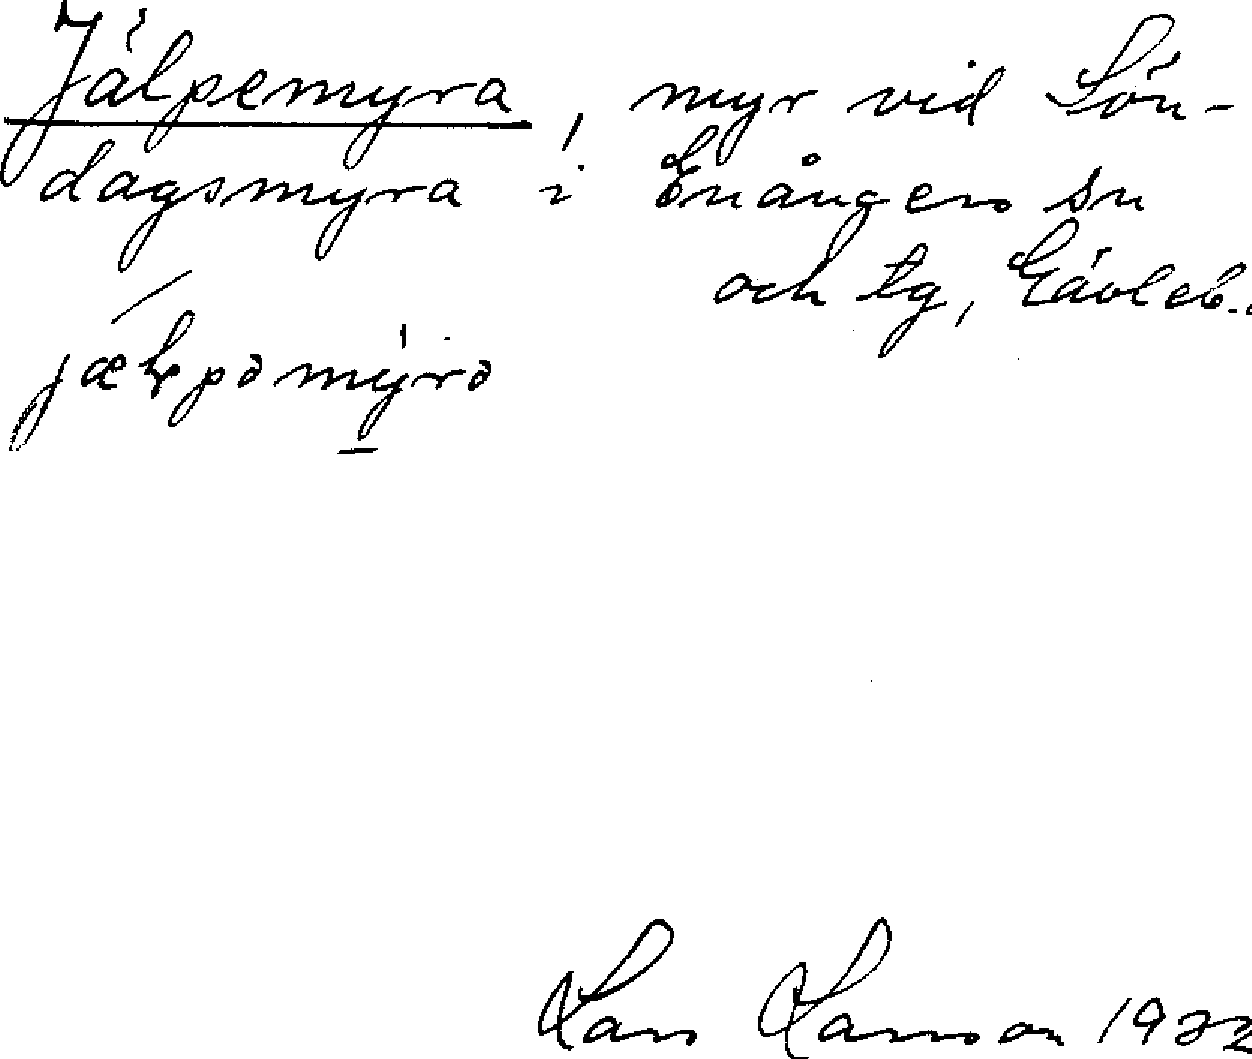 Jälpemyra, myr vid Sön-
dagsmyra i Enångers sn
och tg, Gävleb.
Lars Larsson 1932